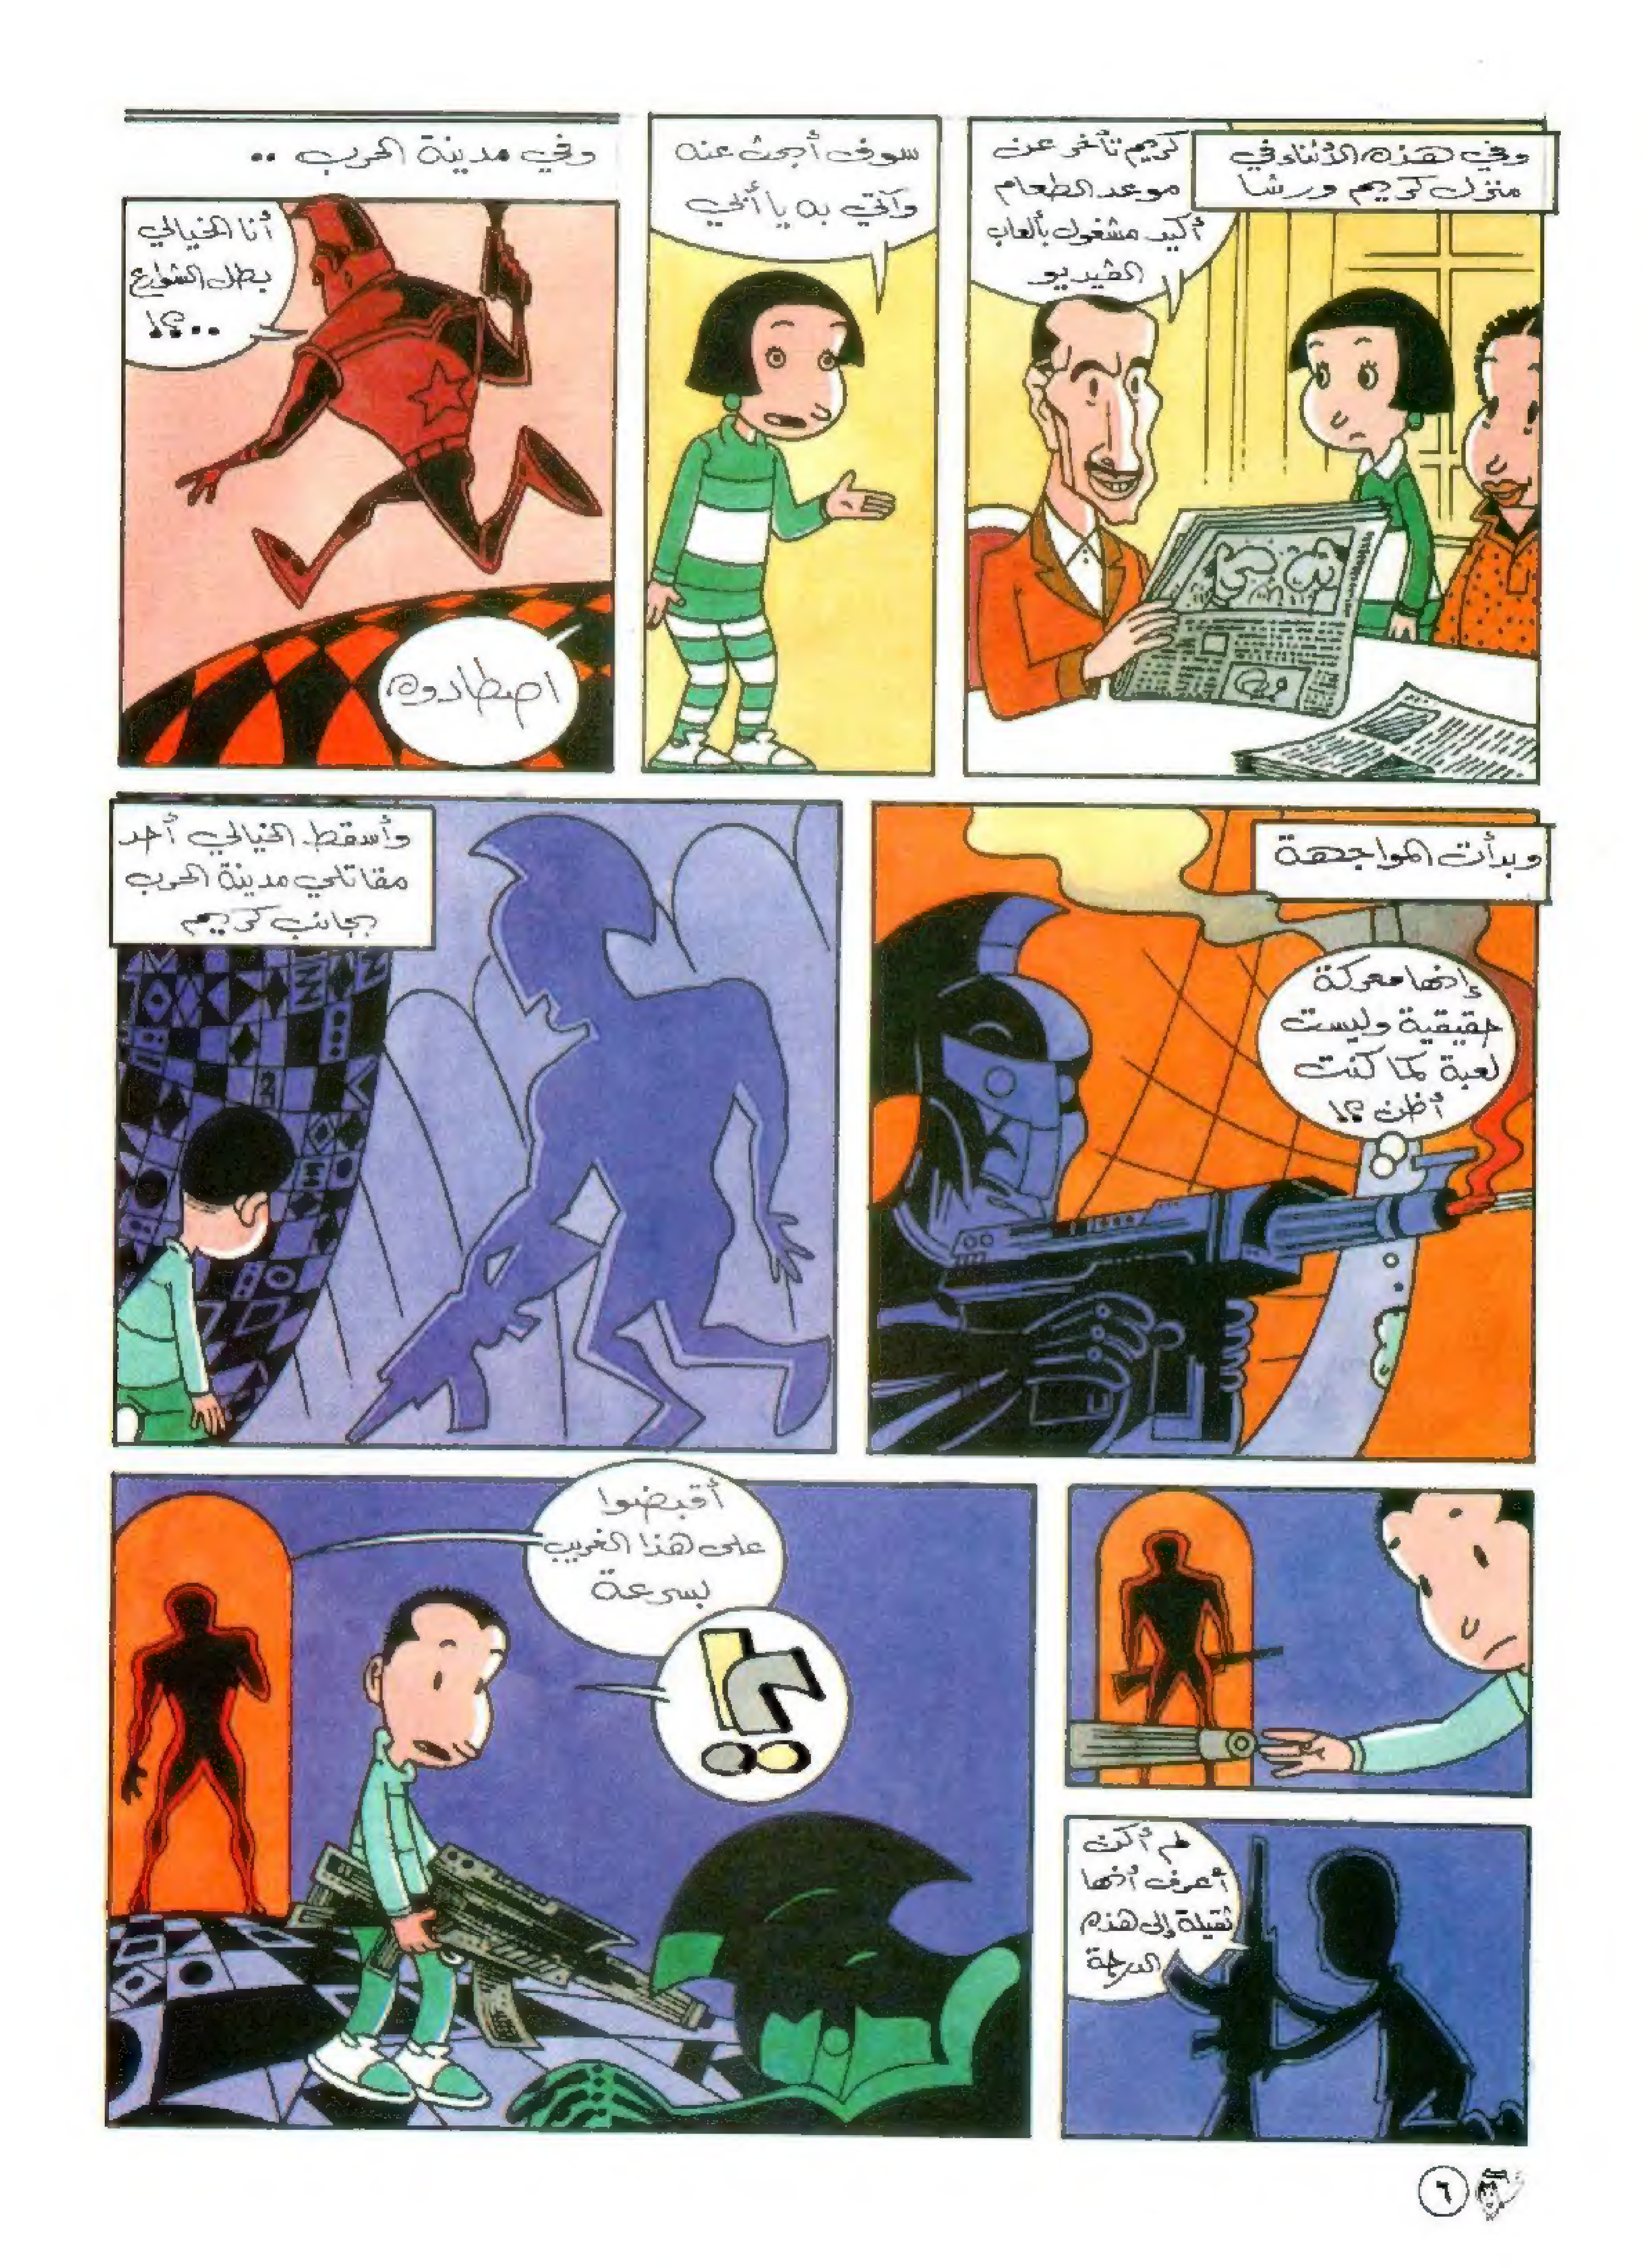 وفي هذه الأثناء في
منزل كريم ورشا
كريم تأخر عن
موعد الطعام
أكيد مشغول بألعاب
الفيديو
سوف أبحث عنه
وآتي به يا أبي
وفي مدينة الحرب ..
أنا الخيالي
بطل الشوارع
..؟!
اصطادوه
وبدأت المواجهة
إنها معركة
حقيقية وليست
لعبة كما كنت
أظن ؟!
وأسقط الخيالي أحد
مقاتلي مدينة الحرب
بجانب كريم
لم أكن
أعرف أنها
ثقيلة إلى هذه
الدرجة
أقبضوا
على هذا الغريب
بسرعة
؟!
٦